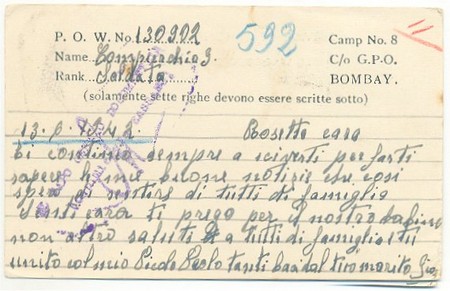 P. O. W. No. 130902 592 Camp No. 8
Name J. C/o G.P.O.
Rank Soldato BOMBAY.
(solamente sette righe devono essere scritte sotto)
13. 6. 1942. Rosetta cara
Ti continuo sempre a scriverti per farti
sapere le mie buone notizie che così
spero di sentire di tutti di famiglia
Senti cara ti prego per il nostro bambino
non altro saluti a tutti di famiglia e tu
unito col mio tanti baci dal tuo marito